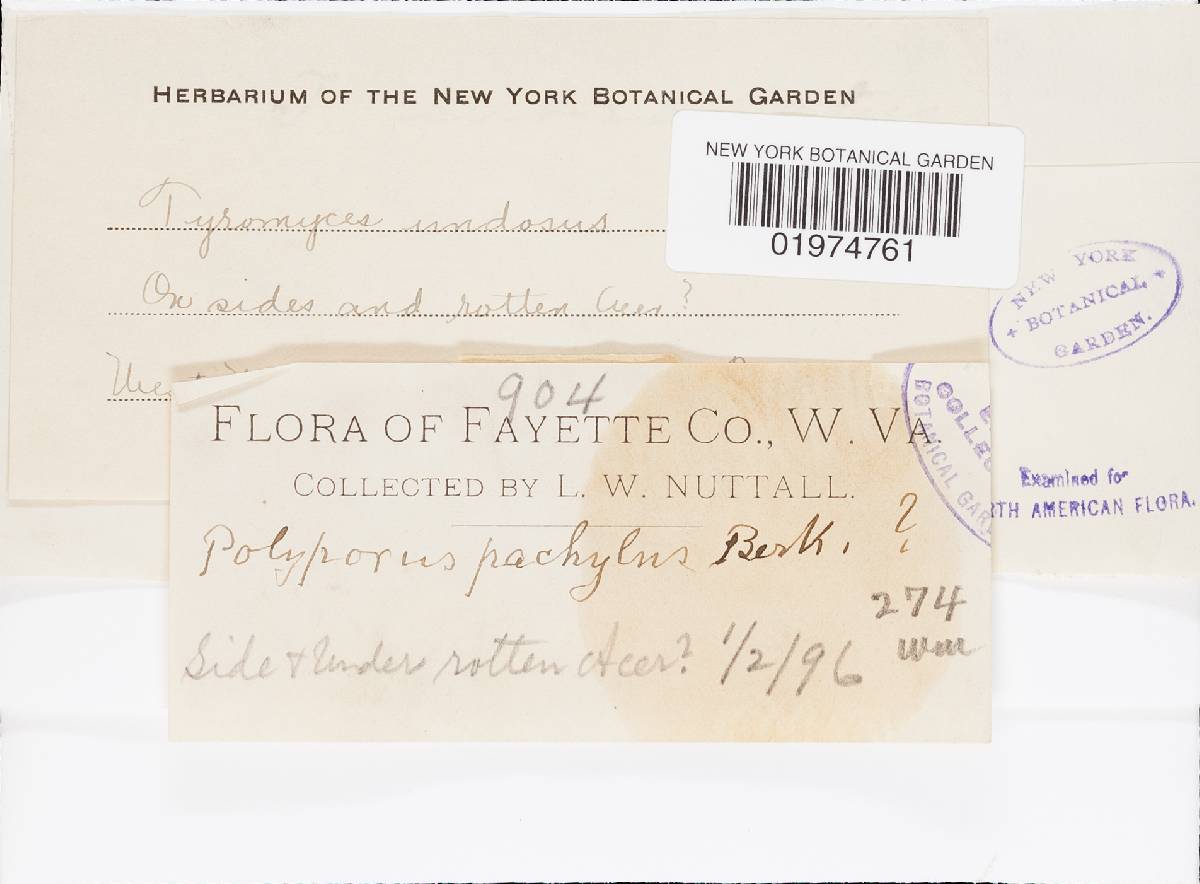 HERBARIUM OF THE NEW YORK BOTANICAL GARDEN
NEW YORK BOTANICAL GARDEN
01974761
Tyromyces undosus
On sides and rotten Acer?
NEW YORK
BOTANICAL
GARDEN.
904
FLORA OF FAYETTE CO., W. VA.
COLLECTED BY L. W. NUTTALL.
COLLEC
BOTANICAL GAR
Examined for
RTH AMERICAN FLORA.
Polyporus pachylus Berk. ?
274
Side & Under rotten Acer? 1/2/96